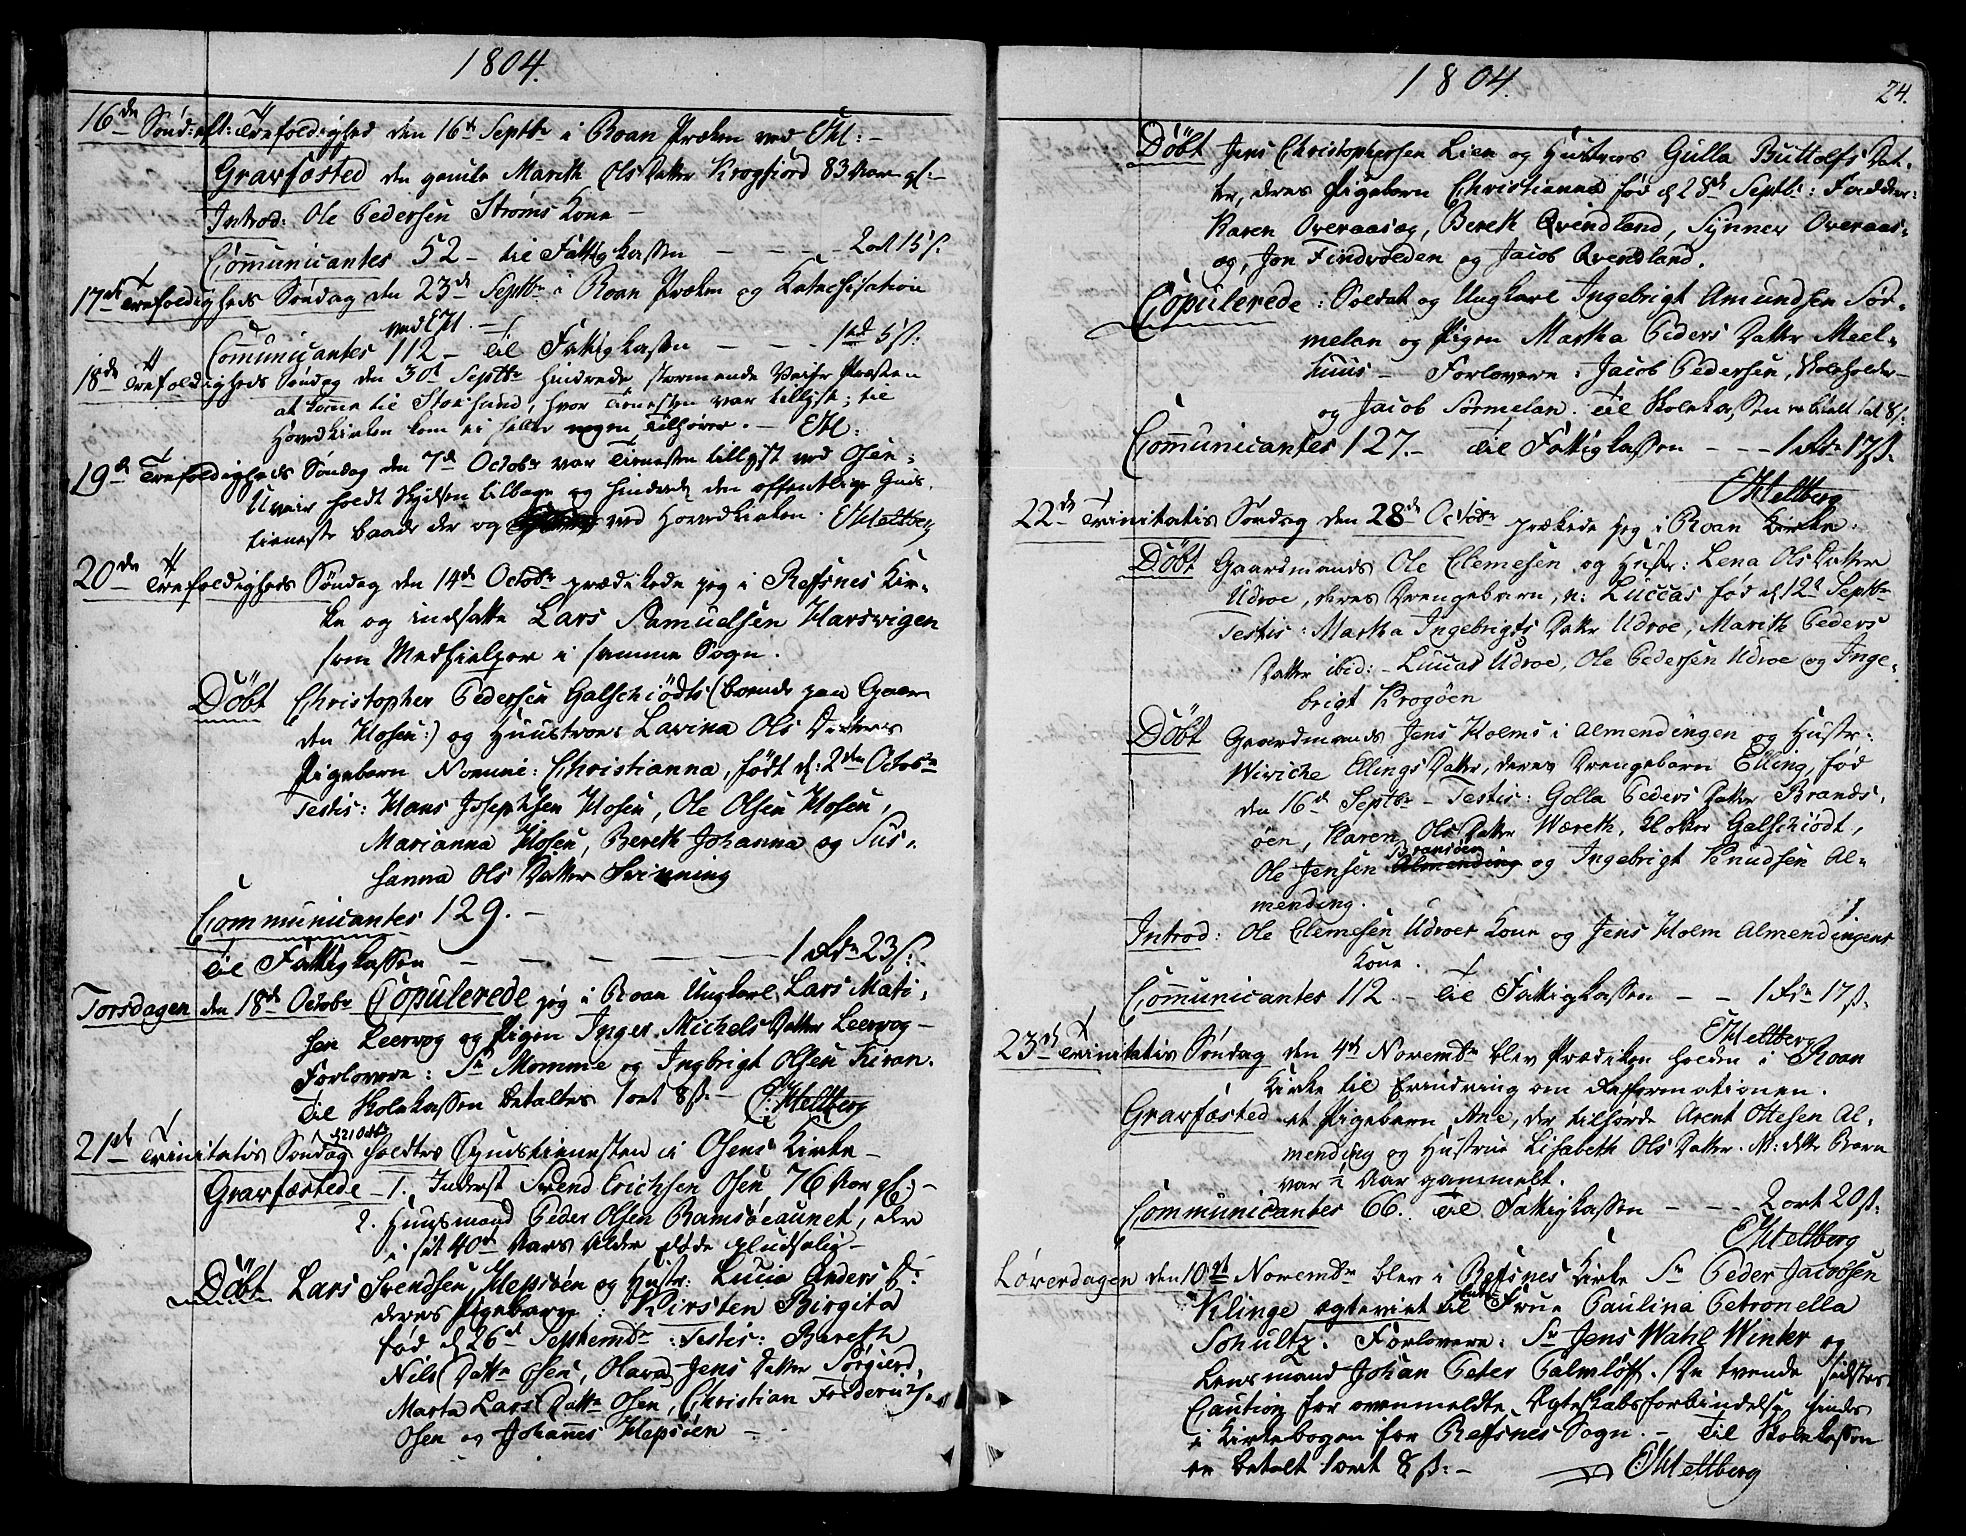 1804.
16de Sønd: eft: Trefoldighed den 16de Septbr i Roan Præken ved EM: -
Gravfæsted den gamle Marith Ols Datter Krogfiord 83 Aar gl: -
Introd: Ole Pedersen Strøms Kone -
Communicantes 52 - til Fattigkassen - - - 2 ort 15 s.
17de Trefoldigheds Søndag den 23de Septbr i Roan Præken og Katechisation
ved EM. -
Communicantes 112 - Til Fattigkassen - - - 1 rd 5 s.
18de Trefoldigheds Søndag den 30te Septbr hindrede stormende Veir Præsten
at komme til Stoksund, hvor Tienesten var tillyst; til
Hovedkirken kom ei heller nogen Tilhører. - EM:
19de Trefoldigheds Søndag den 7de Octobr var Tienesten tillyst ved Osen;
Uveir holdt Skydsen tilbage og hindrede den offentlige Guds-
tieneste baade der og ved Hovedkirken. EMeltberg
20de Trefoldigheds Søndag den 14de Octobr prædikede jeg i Refsnes Kir-
ke og indsatte Lars Samuelsen Harsvigen
som Medhielper i samme Sogn.
Döbt Christopher Pedersen Galschiödts (boende paa Gaar-
den Mosen:) og Huustroes Lavina Ols Datters
Pigebarn Nomine: Christianna, født d: 2den Octobr
Testis: Hans Josephsen Mosen, Ole Olsen Mosen,
Marianna Mosen, Bereth Johanna og Sus-
hanna Ols Datter Svinning
Communicantes 129. -
Til Fattigkassen - - - - - 1 Rdr 23 s:
Torsdagen den 18de Octobr Copulerede jeg i Roan Ungkarl Lars Mati-
sen Leervog og Pigen Inger Michels Datter Leervog -
Forlovere: Sr Momme og Ingbrigt Olsen Kiran.
Til Skolekassen betaltes 1 ort 8 s. - EMeltberg
21de Trinitatis Søndag d 21 Octbr holdtes Gudstienesten i Osens Kirke -
Gravfæstede - 1. Inderst Svend Erichsen Osen, 76 Aar gl: -
2. Huusmand Peder Olsen Ramsöeaunet, alre
i sit 40de Aars Alder døde pludselig -
Döbt Lars Svendsen Hepsöen og Hustr: Lucia Anders D:
deres Pigebarn: Kirsten Birgita
fød d 26de Septembr: Testis: Bereth
Nils Datter Osen, Olava Jens Datter Sørgierd
Marta Lars Datter Osen, Christian Frederichs.
Osen og Johannes Hepsöen -
1804.
24.
Döbt Jens Christophersen Lien og Hustroes Gulla Buttolfs Dat-
ter, deres Pigebarn Christianna fød d 28de Septbr: Fadder:
Karen Overaasæg, Bereth Qvendland, Synnev Overaas-
æg, Jon Findvolden og Jacob Qvendland.
Copulerede: Soldat og Ungkarl Ingebrigt Amundsen Sør-
melan og Pigen Martha Peders Datter Meel-
huus - Forlovere: Jacob Pedersen, Skoleholder -
og Jacob Sørmelan. Til Skolekassen er betalt 1 ort 8 s:
Communicantes 127. - Til Fattigkassen - - - 1 Rdr 17 s.
EMeltberg
22de Trinitatis Søndag den 28de Octobr prækede jeg i Roan Kirke.
Döbt Gaardmands Ole Clemesen og Hustr: Lena Ols Datter
Udroe, deres Drengebarn, n: Luccas fød d 12te Septbr
Testis: Martha Ingebrigts Datter Udroe, Marith Peders
Datter ibid: - Luccas Udroe, Ole Pedersen Udroe og Inge-
brigt Krogöen
Döbt Gaardmands Jens Holms i Almendingen og Hustr:
Wiviche Ellings Datter, deres Drengebarn Elling, fød
den 16de Septbr - Testis: Golla Peders Datter Brands-
öen, Karen Ols Datter Wæreth, Klokker Galschiödt,
Bransöen
Ole Jensen Almending og Ingebrigt Knudsen Al-
mending.
Introd: Ole Clemesen Udroes Kone og Jens Holm Almendingens
Kone.
Communicantes 112. - Til Fattigkassen - - 1 Rdr 17 s.
EMeltberg
23de Trinitatis Søndag den 4de Novembr blev Prædiken holden i Roan
Kirke til Erindring om Reformationen.
Gravfæsted et Pigebarn, Ane, der tilhørde Arent Ottesen Al-
mending og Hustrue Lisabeth Ols Datter. N: dette Barn
var ½ Aar gammelt.
Communicantes 66. Til Fattigkassen - - - 2 ort 20 s.
EMeltberg
Løverdagen den 10de Novembr blev i Refsnes Kirke Sr Peder Jacobsen
Klinge ægteviet til Frue Paulina Petronella
Schultz. Forlovere: Sr Jens Wahl Winter og
Lensmand Johan Peter Palmlöf. De tvende sidstes
Caution for ovenmeldte Ægteskabsforbindelse findes
i Kirkebogen for Refsnes Sogn. - Til Skolekassen
er betalt 1 ort 8 s: - EMeltberg